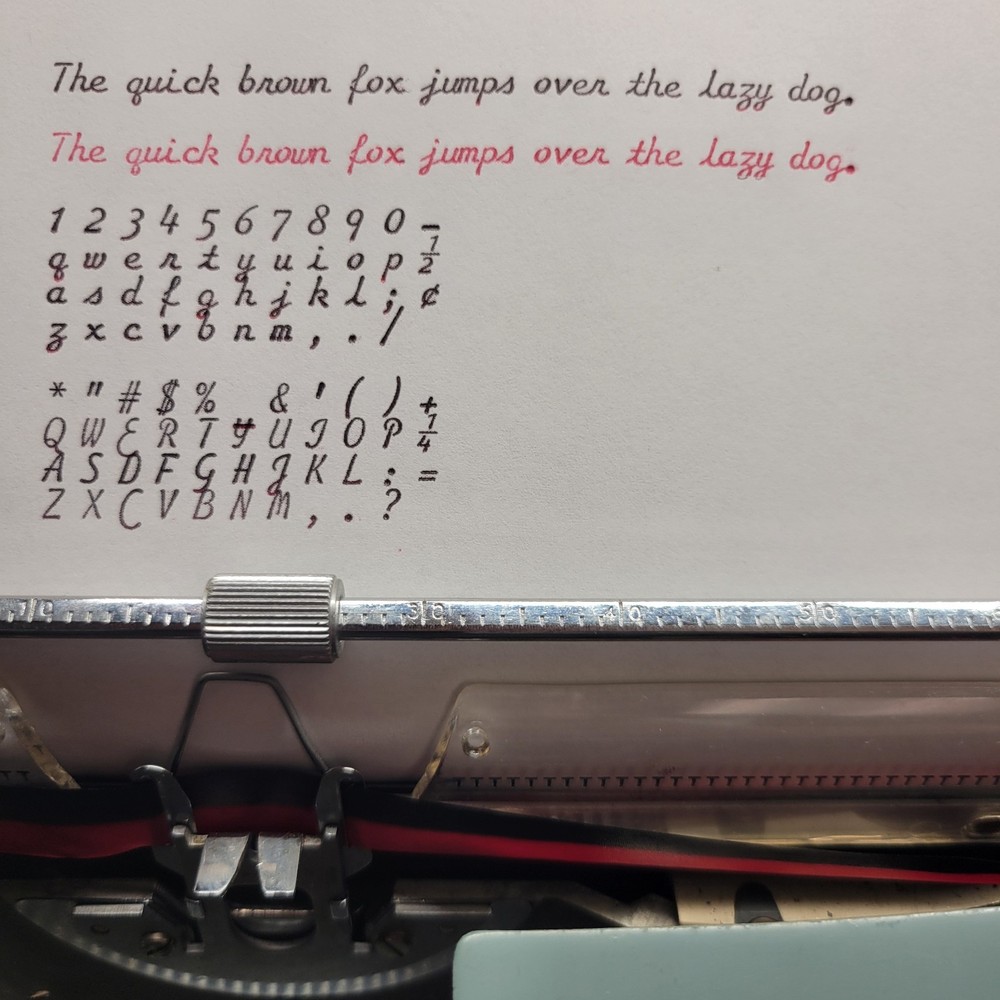 The quick brown fox jumps over the lazy dog.
The quick brown fox jumps over the lazy dog.
1 2 3 4 5 6 7 8 9 0 -
q w e r t y u i o p ½
a s d f g h j k l ; ¢
z x c v b n m , . /
* " # $ % & ' ( ) +
Q W E R T Y U I O P ¼
A S D F G H J K L : =
Z X C V B N M , . ?
10 30 40 50